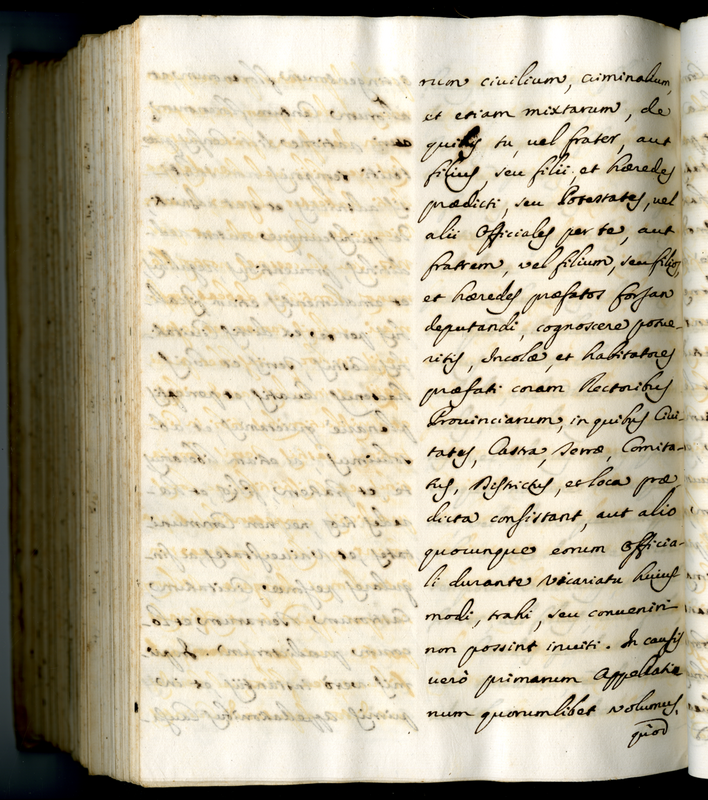 rum civilium, criminalium,
et etiam mixtarum, de
quibus tu, vel frater, aut
filius, seu filii et hæredes
prædicti, seu Potestates, vel
alii Officiales per te, aut
fratrem, vel filium, seu filios,
et hæredes præfatos forsan
deputandi, cognoscere potue-
ritis, Incolæ, et habitatores
præfati coram Rectoribus
Provinciarum, in quibus Civi-
tates, Castra, Terræ, Comita-
tus, Districtus, et loca præ
dicta consistant, aut alio
quocunque eorum Officia-
li durante Vicariatu huius
modi, trahi, seu conveniri
non possint inviti. In causis
verò primarum Appellatio
num quorumlibet volumus,
quod